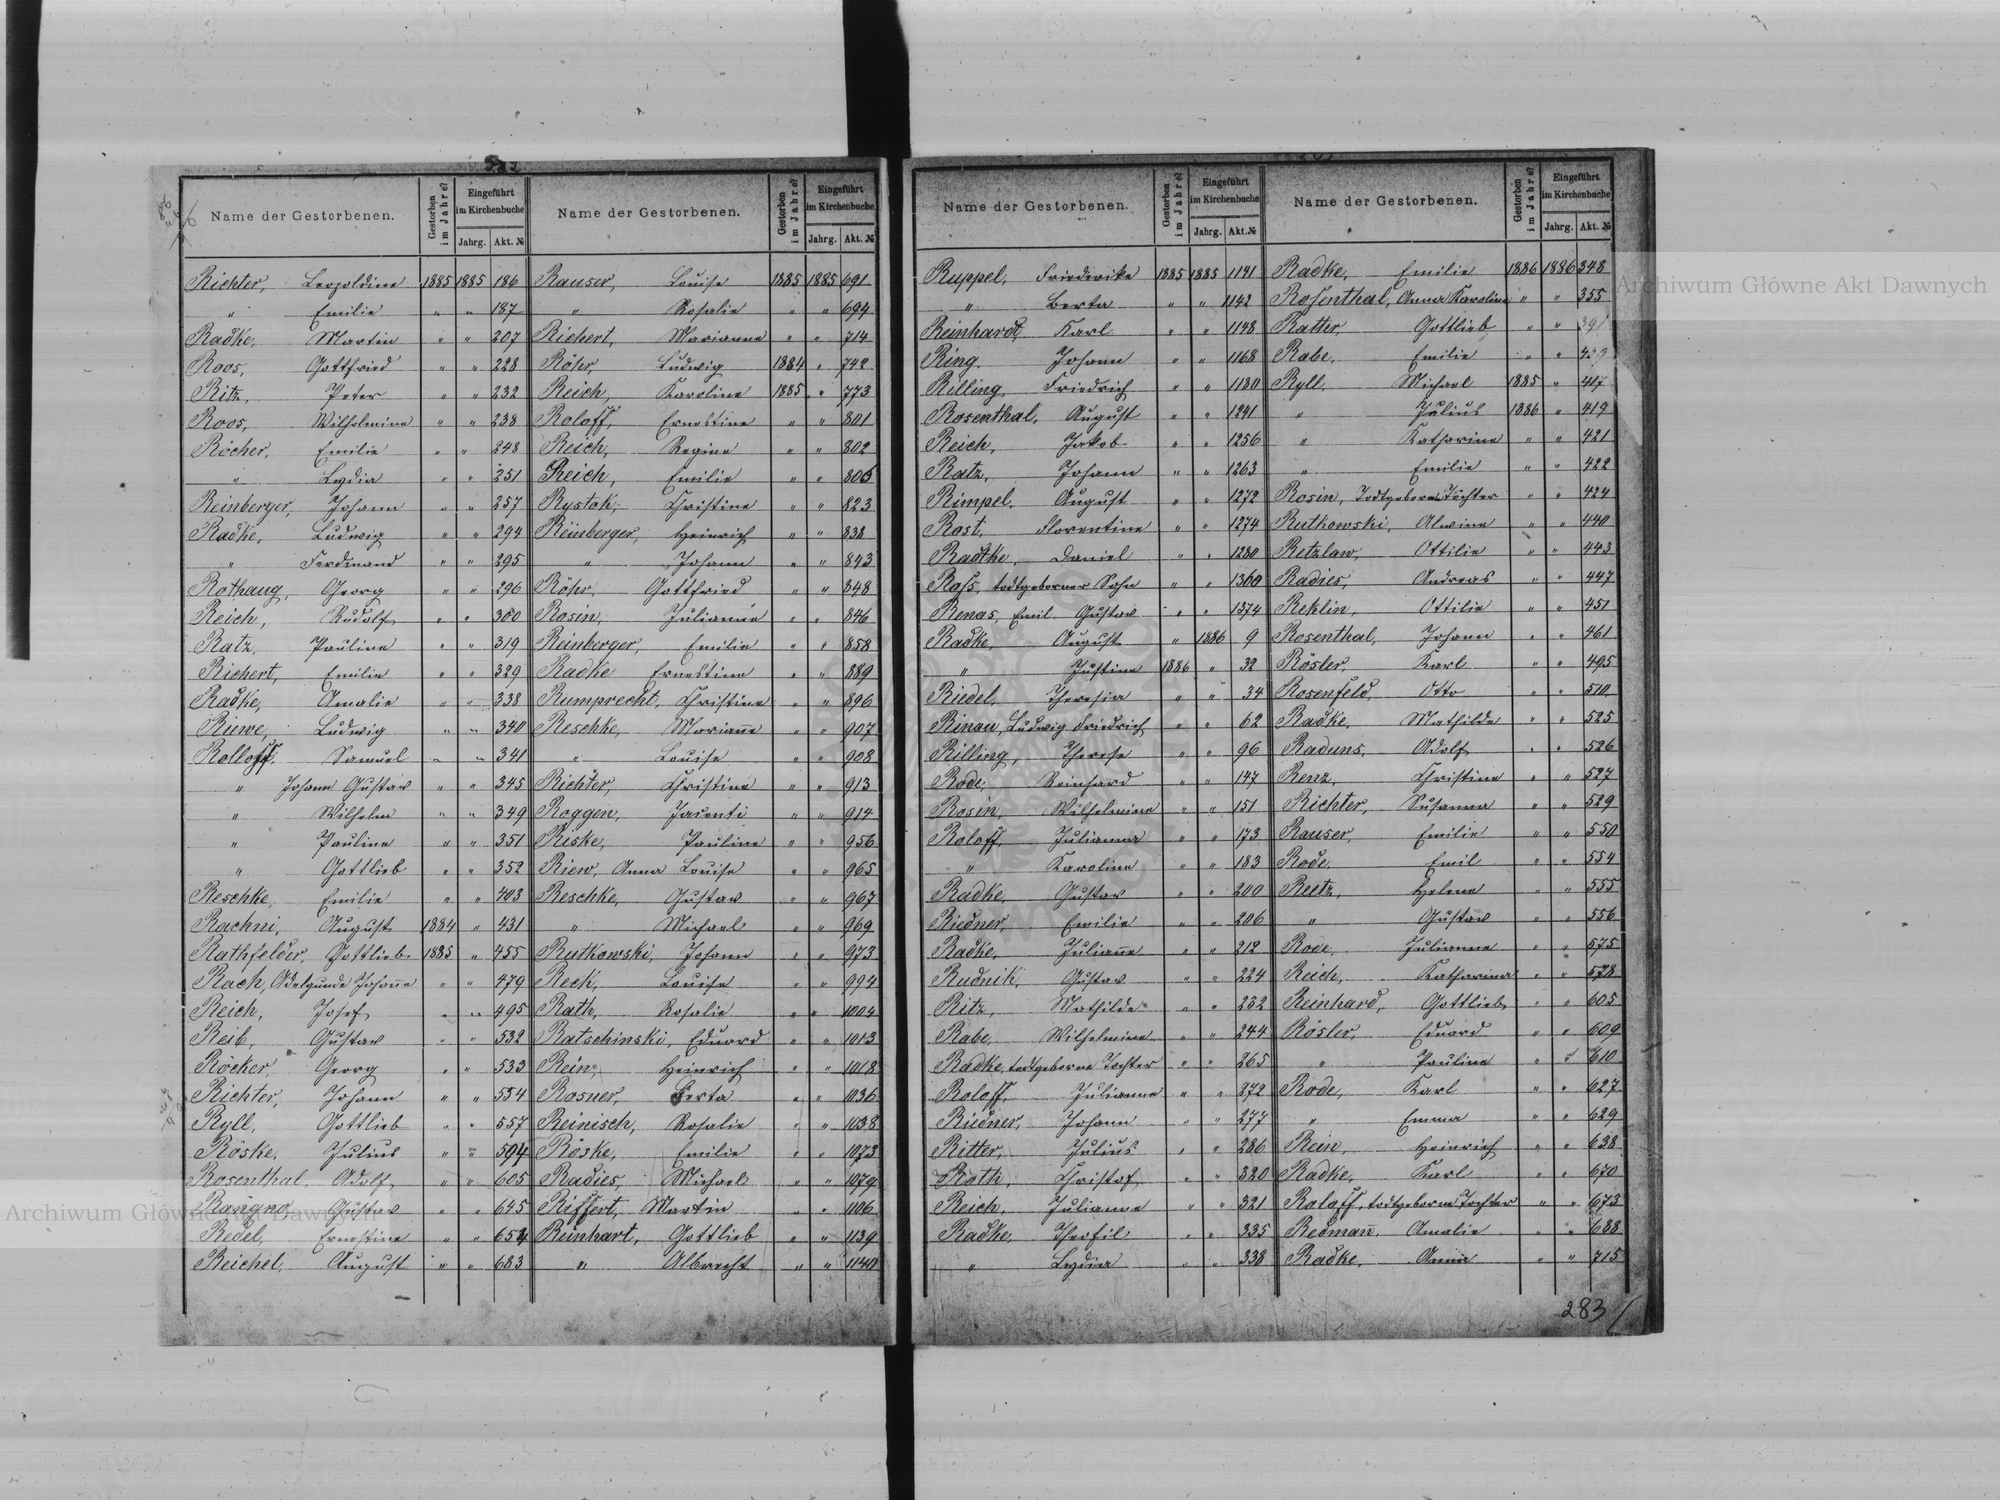 282
Name der Gestorbenen. Gestorben im Jahre? Eingeführt im Kirchenbuche Jahrg. Akt. №
Richter, Leopoldine 1885 1885 186
" Emilie " " 187
Radke, Martin " " 207
Roos, Gottfried " " 228
Ritz, Peter " " 232
Roos, Wilhelmine " " 238
Röcher, Emilie " " 248
" Lydia " " 251
Reinberger, Johann " " 257
Radke, Ludwig " " 294
" Ferdinand " " 295
Rothaug, Georg " " 296
Reich, Rudolf " " 300
Ratz, Pauline " " 319
Richert, Emilie " " 329
Radke, Amalie " " 338
Riewe, Ludwig " " 340
Rolloff, Samuel " " 341
" Johann Gustav " " 345
" Wilhelm " " 349
" Pauline " " 351
" Gottlieb " " 352
Reschke, Emilie " " 403
Rachni, August 1884 " 431
Rathfelder, Gottlieb 1885 " 455
Rach, Adelgunde Johañe " " 479
Reich, Josef " " 495
Reib, Gustav " " 532
Röcker, Georg " " 533
Richter, Johann " " 554
Ryll, Gottlieb " " 557
Röske, Julius " " 594
Rosenthal, Adolf " " 605
Gustav " " 645
Redel, Ernestine " " 654
Reichel, August " " 683
Name der Gestorbenen. Gestorben im Jahre? Eingeführt im Kirchenbuche Jahrg. Akt. №
Rauser, Louise 1885 1885 691
" Rosalie " " 694
Richert, Marianne " " 714
Röhr, Ludwig 1884 " 742
Reich, Karoline 1885 " 773
Roloff, Ernestine " " 801
Reich, Regine " " 802
Reich, Emilie " " 806
Rystok, Christine " " 823
Reinberger, Heinrich " " 838
" Johann " " 843
Röhr, Gottfried " " 848
Rosin, Julianne " " 846
Reinberger, Emilie " " 858
Radke Ernestine " " 889
Rumprecht, Christine " " 896
Reschke, Mariañe " " 907
" Louise " " 908
Richter, Christine " " 913
Roggen, " " 914
Riske, Pauline " " 956
Riew, Anna Louise " " 965
Reschke, Gustav " " 967
" Michael " " 969
Rutkowski, Johann " " 973
Reck, Louise " " 994
Rath, Rosalie " " 1004
Ratschinski, Eduard " " 1013
Rein, Heinrich " " 1018
Rosner, Berta " " 1036
Reinisch, Rosalie " " 1038
Röske, Emilie " " 1073
Radies, Michael " " 1079
Riffert, Martin " " 1106
Reinhart, Gottlieb " " 1139
" Albrecht " " 1140
Name der Gestorbenen. Gestorben im Jahre? Eingeführt im Kirchenbuche Jahrg. Akt. №
Ruppel, Friederike 1885 1885 1141
" Berta " " 1142
Reinhardt, Karl " " 1148
Ring, Johann " " 1168
Rilling, Friedrich " " 1180
Rosenthal, August " " 1241
Reich, Jakob " " 1256
Ratz, Johann " " 1263
Rimpel, August " " 1272
Rost, Florentine " " 1274
Radtke, Daniel " " 1280
Ross, todtgeborner Sohn " " 1360
Renas, Emil Gustav " " 1374
Radke, August " 1886 9
" Justine 1886 " 32
Riedel, Theresia " " 34
Rinau, Ludwig Friedrich " " 62
Rilling, Therese " " 96
Rode, Reinhard " " 147
Rosin, Wilhelmine " " 151
Roloff, Julianna " " 173
" Karoline " " 183
Radke, Gustav " " 200
Riedner, Emilie " " 206
Radke, Juliañe " " 212
Rudnik, Gustav " " 224
Ritz, Mathilde " " 232
Rabe, Wilhelmine " " 244
Radke, todtgeborne Tochter " " 265
Roloff, Julianne " " 272
Riedner, Johann " " 277
Ritter, Julius " " 286
Roth, Christof " " 320
Reich, Julianne " " 321
Radke, Theofil " " 335
" Lydia " " 338
Name der Gestorbenen. Gestorben im Jahre? Eingeführt im Kirchenbuche Jahrg. Akt. №
Radke, Emilie 1886 1886 348
Rosenthal, Anna Karoline " " 355
Ratter Gottlieb " " 391
Rabe, Emilie " "
Ryll, Michael 1885 " 417
" Julius 1886 " 419
" Katharine " " 421
" Emilie " " 422
Rosin, Todtgeborne Tochter " " 424
Rutkowski, Alwine " " 440
Retzlaw, Ottilie " " 443
Radies, Andreas " " 447
Rehlin, Ottilie " " 451
Rosenthal, Johann " " 461
Rösler, Karl " " 495
Rosenfeld, Otto " " 510
Radke, Mathilde " " 525
Raduns, Adolf " " 526
Renz, Christine " " 527
Richter, Susanna " " 529
Rauser, Emilie " " 550
Rode, Emil " " 554
Reetz, Helene " " 555
" Gustav " " 556
Rode, Julianne " " 575
Reich, Katharina " " 578
Reinhard, Gottlieb " " 605
Rösler, Eduard " " 609
" Pauline " " 610
Rode, Karl " " 627
" Emma " " 629
Rein, Heinrich " " 638
Radke, Karl " " 670
Roloff, todtgeborne Tochter " " 673
Redmañ, Amalie " " 688
Radke, Anna " " 715
283
Archiwum Główne Akt Dawnych
Archiwum Główne Akt Dawnych